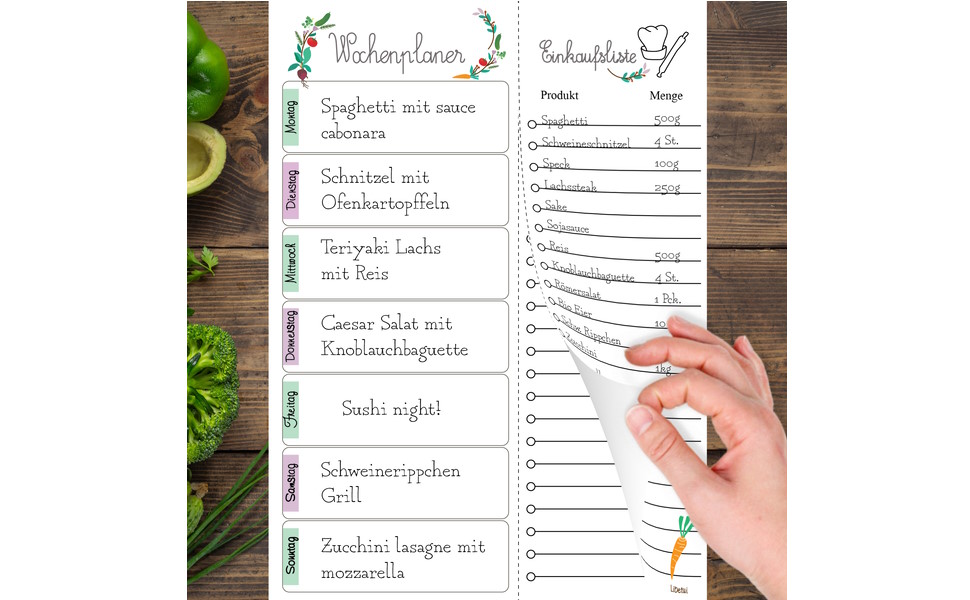 Wochenplaner
Montag
Spaghetti mit sauce
cabonara
Dienstag
Schnitzel mit
Ofenkartopffeln
Mittwoch
Teriyaki Lachs
mit Reis
Donnerstag
Caesar Salat mit
Knoblauchbaguette
Freitag
Sushi night!
Samstag
Schweinerippchen
Grill
Sonntag
Zucchini lasagne mit
mozzarella
Einkaufsliste
Produkt Menge
Spaghetti 500g
Schweineschnitzel 4 St.
Speck 100g
Lachssteak 250g
Sake
Sojasauce
Reis 500g
Knoblauchbaguette 4 St.
Römersalat 1 Pck.
Bio Eier 10
Rippchen
Zucchini 1kg